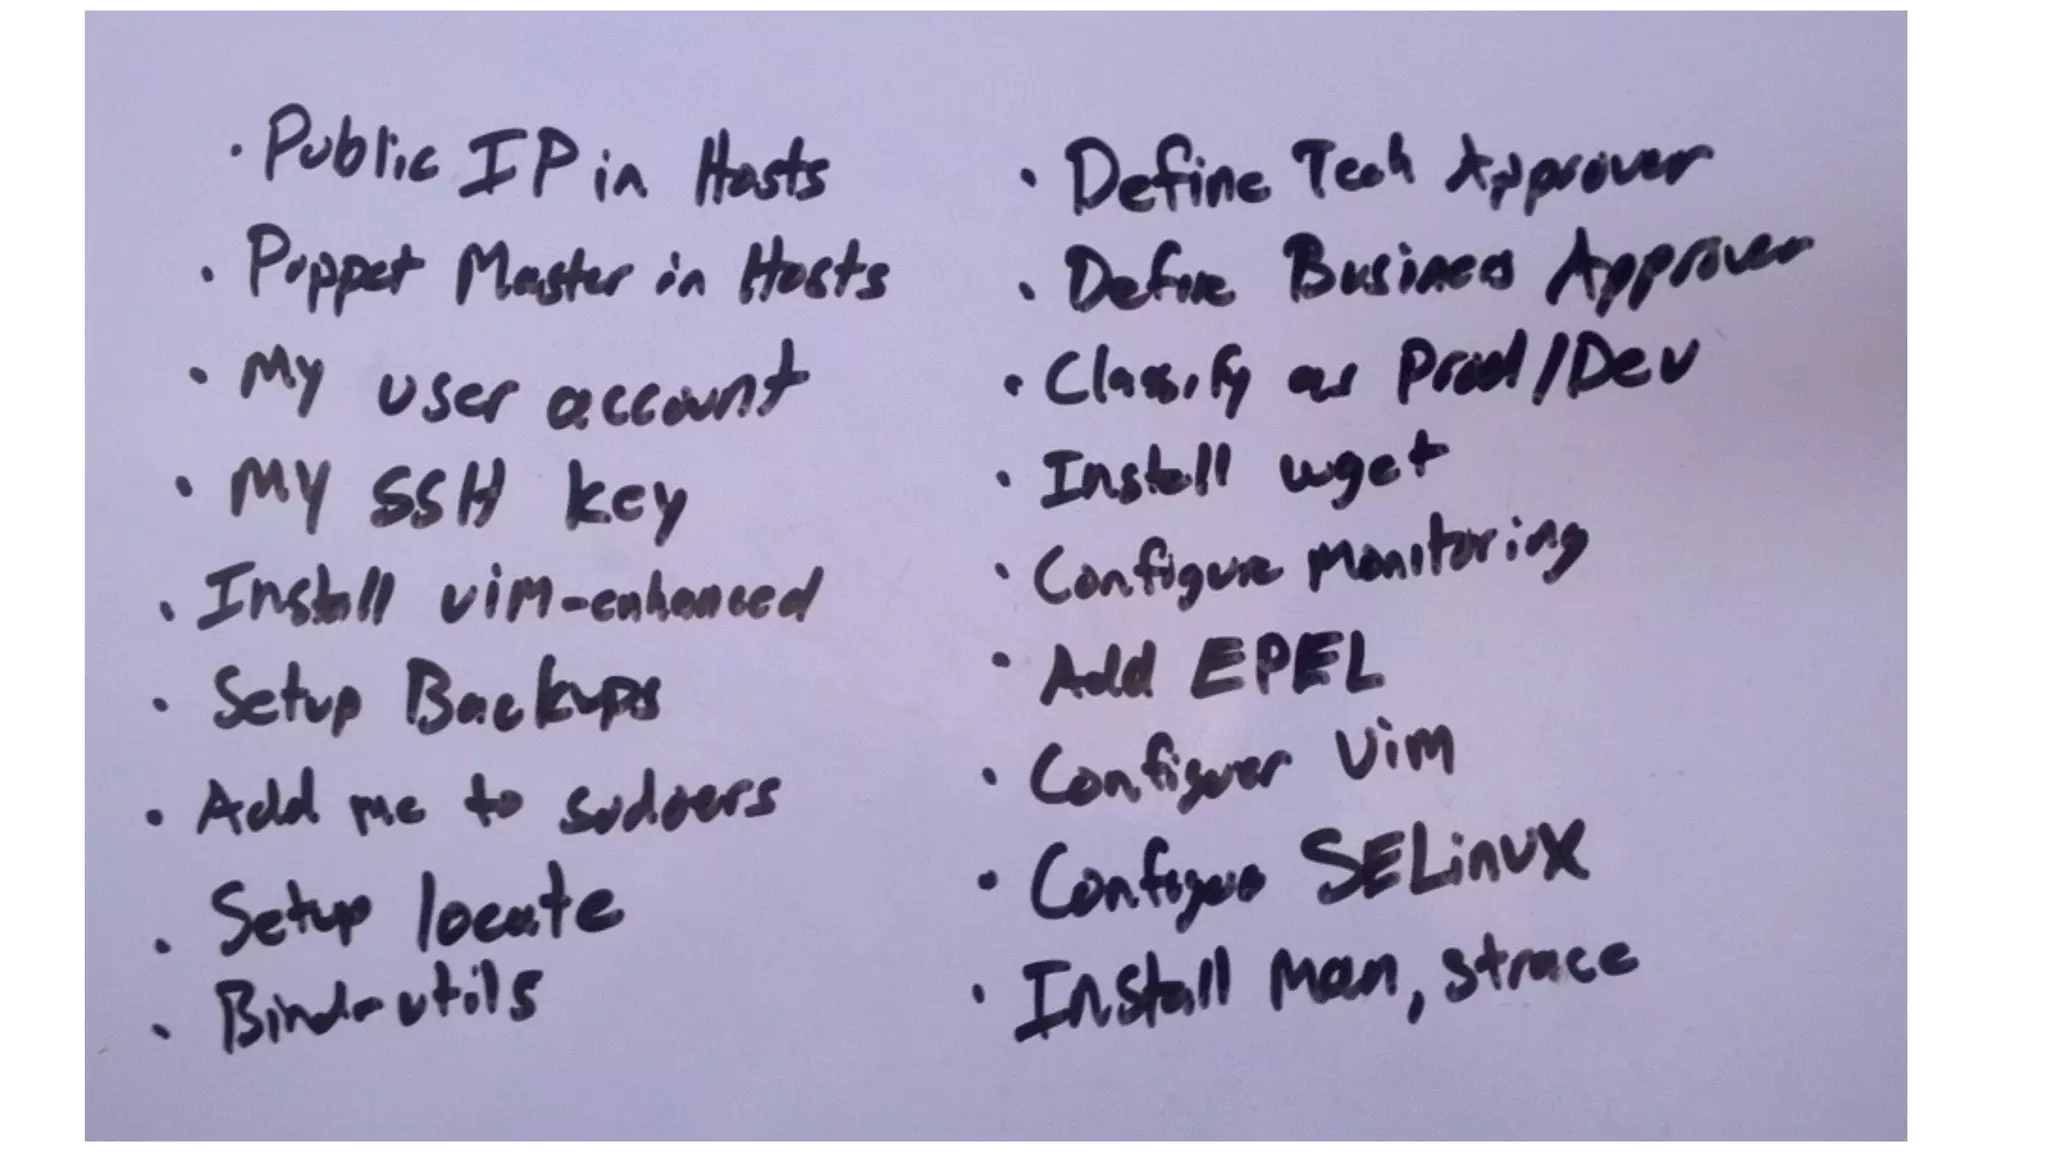 · Public IP in Hosts
· Puppet Master in Hosts
· My user account
· My SSH key
· Install vim-enhanced
· Setup Backups
· Add me to sudoers
· Setup locate
· Bind-utils
· Define Tech Approver
· Define Business Approver
· Classify as Prod/Dev
· Install wget
· Configure Monitoring
· Add EPEL
· Configuer Vim
· Configure SELinux
· Install man, strace